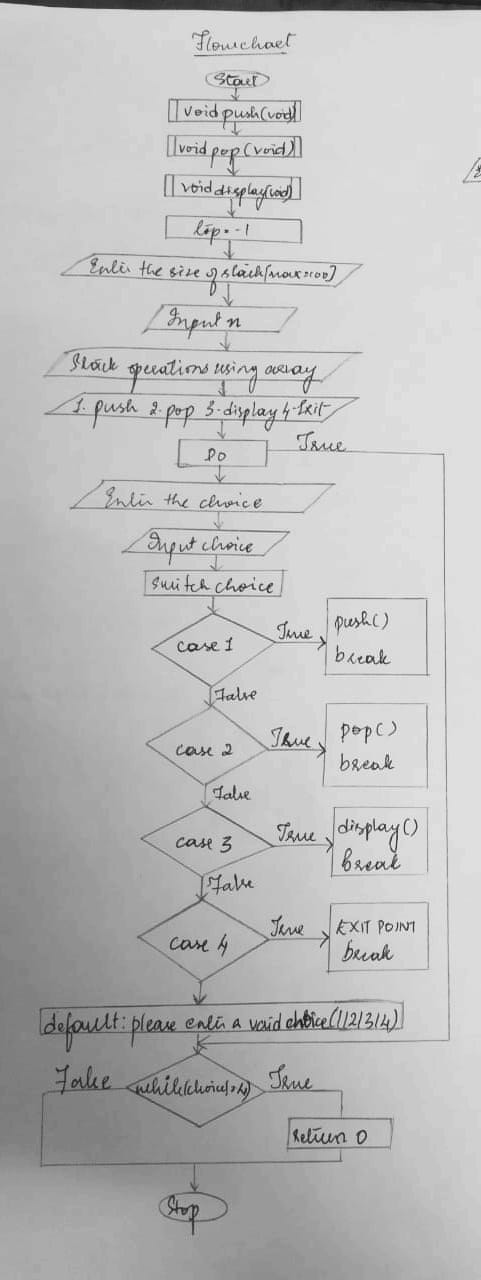 Flowchart
Start
void push(void)
void pop(void)
void display(void)
top=-1
Enter the size of stack[max=100]
Input n
Stack operations using array
1. push 2. pop 3. display 4. Exit
DO
True
Enter the choice
Input choice
switch choice
case 1
True
push()
break
False
case 2
True
pop()
break
False
case 3
True
display()
break
False
case 4
True
EXIT POINT
break
default: please enter a void choice(1/2/3/4)
False
while(choice!=4)
True
Return 0
Stop